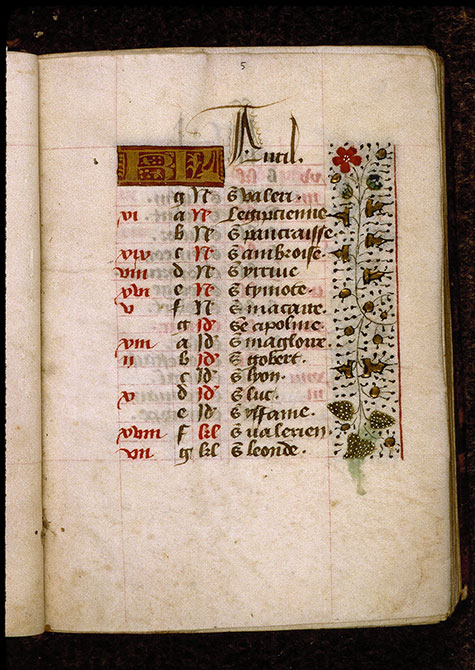 5
Auril.
g N S valeri.
vi a N Legiptienne
b N S pancraisse
xiv c N S ambroise.
viii d N S yrciue
xvi e N S tymote.
v f N S macaire.
g Id Se apoline.
viii a Id S magloire.
ii b Id S gobert.
c Id S lyon.
x d Id S luc.
e Id S yffame.
xviii f kl S valerien.
vii g kl S leonde.